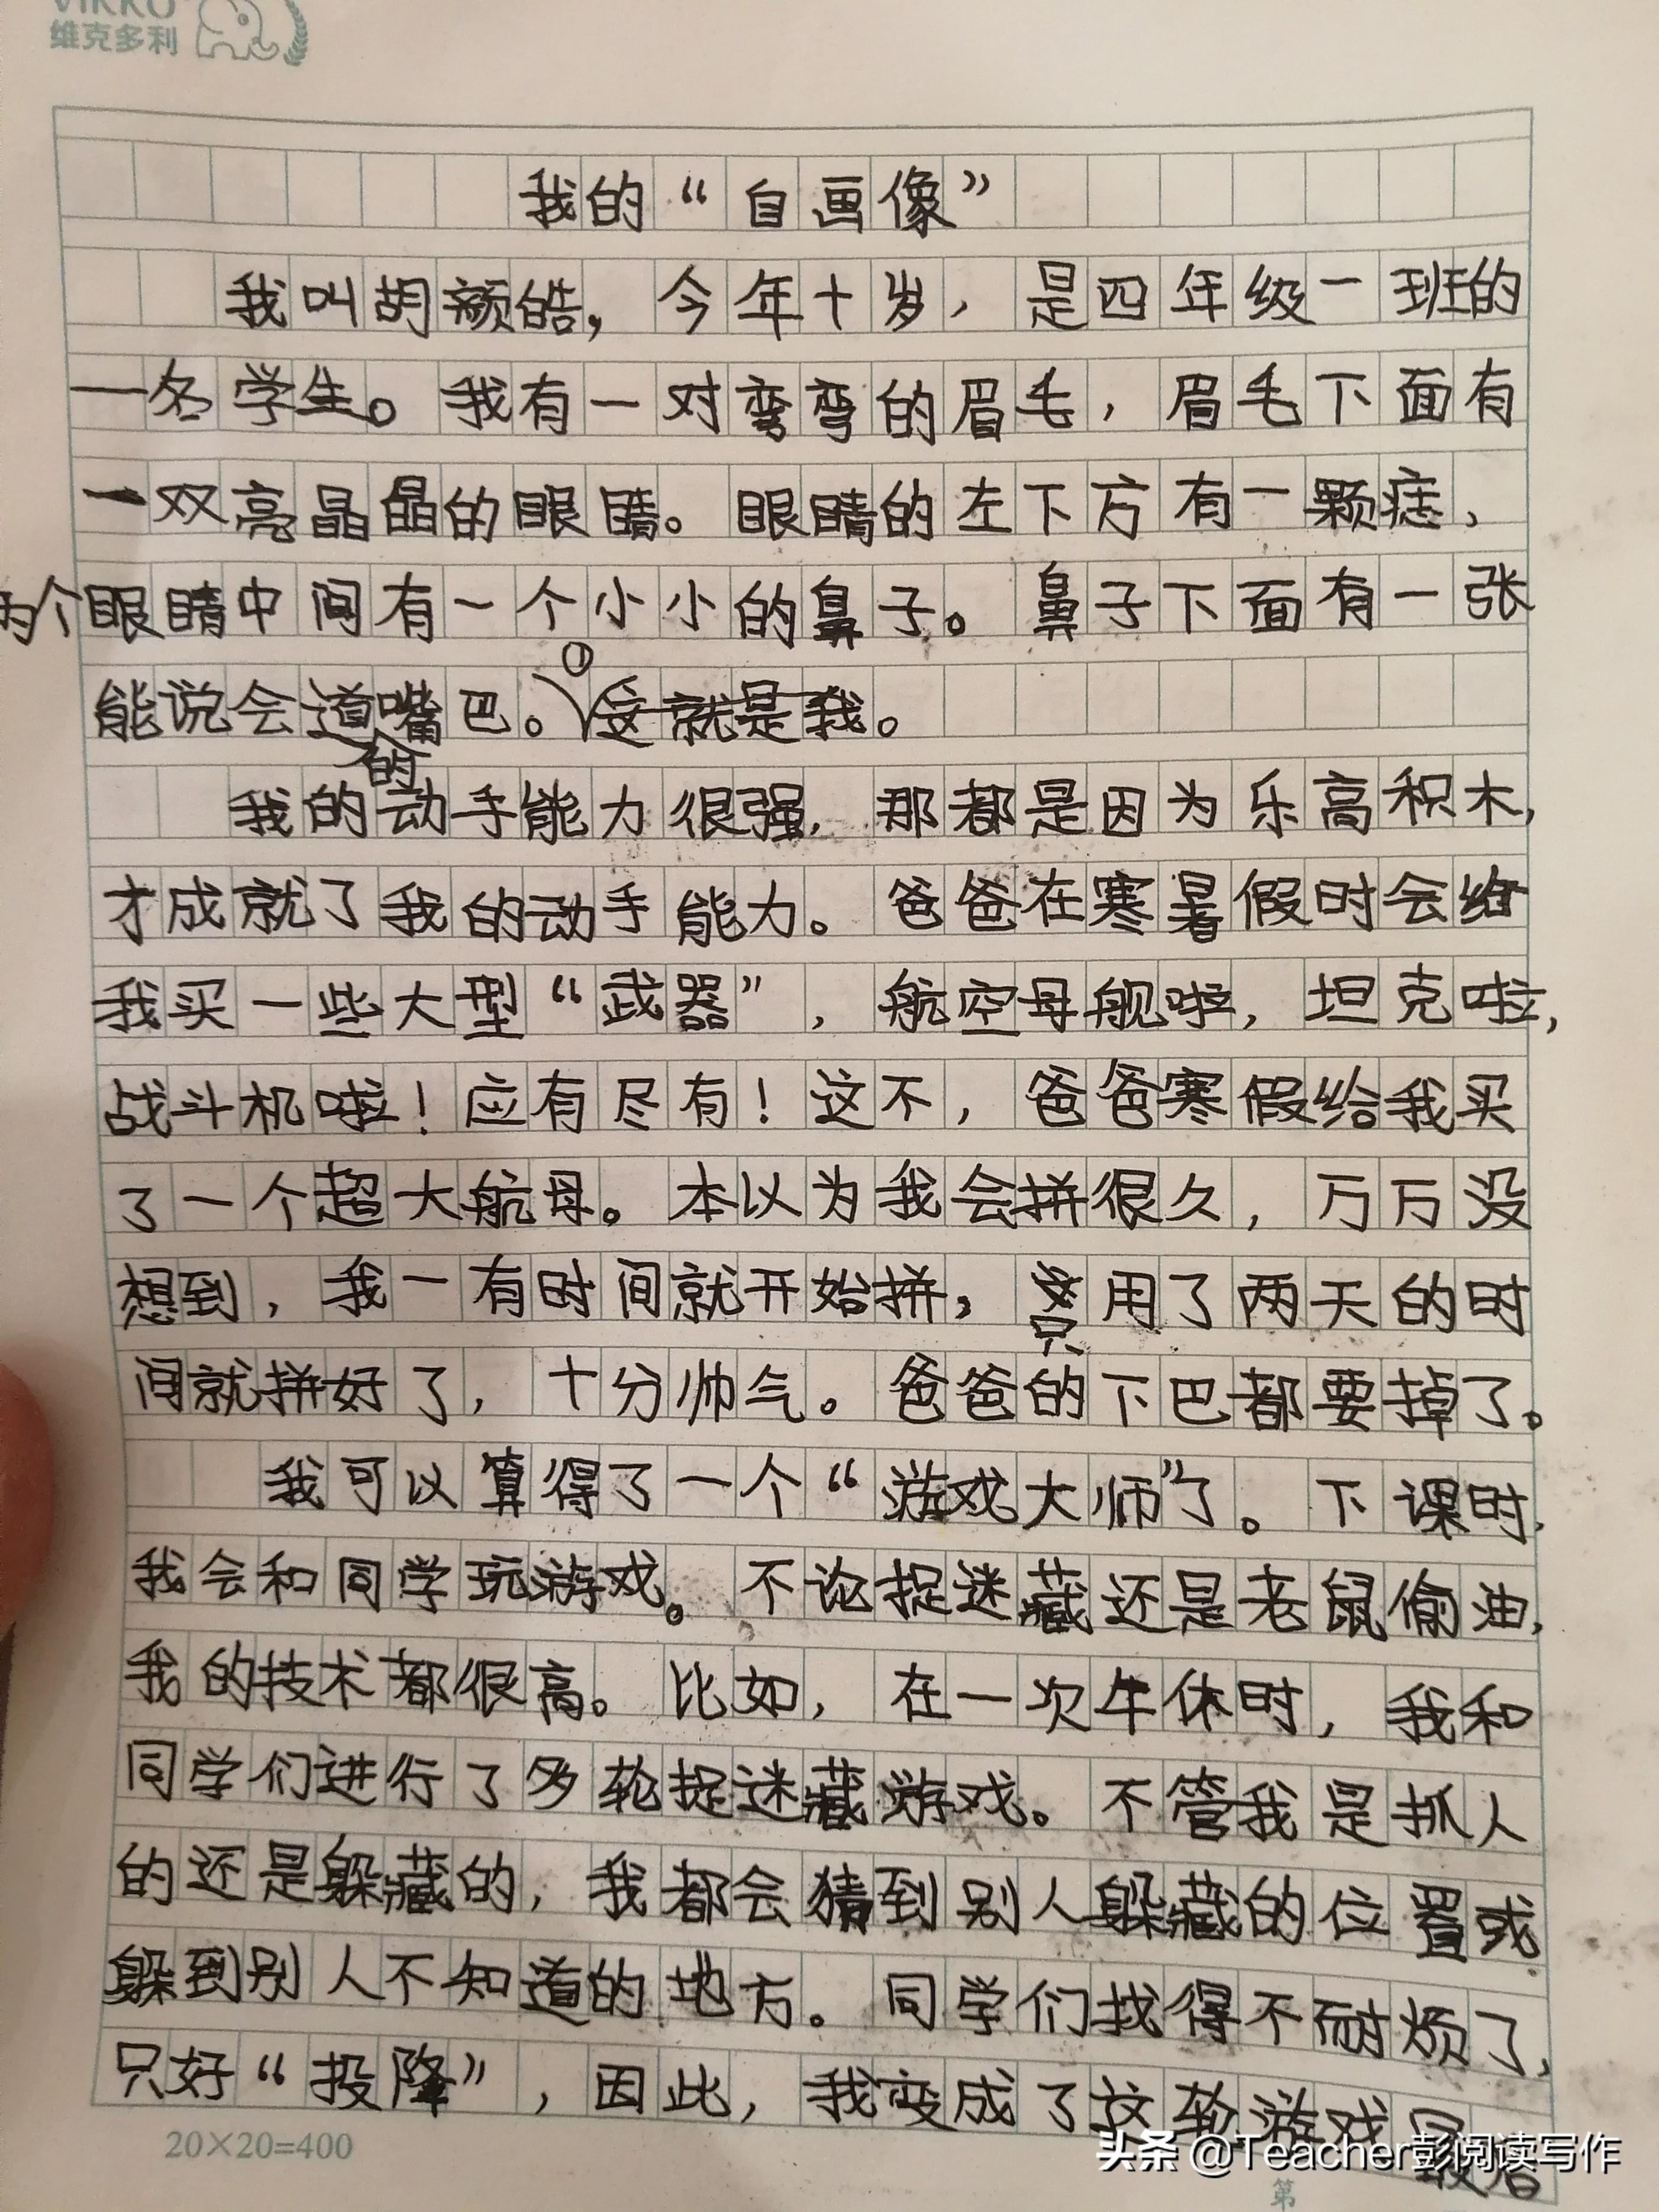 VIKKO
维克多利
我的“自画像”
我叫胡颜皓，今年十岁，是四年级一班的
一名学生。我有一对弯弯的眉毛，眉毛下面有
一双亮晶晶的眼睛。眼睛的左下方有一颗痣，
两个眼睛中间有一个小小的鼻子。鼻子下面有一张
能说会道的嘴巴。①这就是我。
我的动手能力很强，那都是因为乐高积木，
才成就了我的动手能力。爸爸在寒暑假时会给
我买一些大型“武器”，航空母舰啦，坦克啦，
战斗机啦！应有尽有！这不，爸爸寒假给我买
了一个超大航母。本以为我会拼很久，万万没
想到，我一有时间就开始拼，只用了两天的时
间就拼好了，十分帅气。爸爸的下巴都要掉了。
我可以算得了一个“游戏大师”了。下课时，
我会和同学玩游戏。不论捉迷藏还是老鼠偷油，
我的技术都很高。比如，在一次午休时，我和
同学们进行了多轮捉迷藏游戏。不管我是抓人
的还是躲藏的，我都会猜到别人躲藏的位置或
躲到别人不知道的地方。同学们找得不耐烦了，
只好“投降”，因此，我变成了这轮游戏最后
20×20=400
第
头条@Teacher彭阅读写作